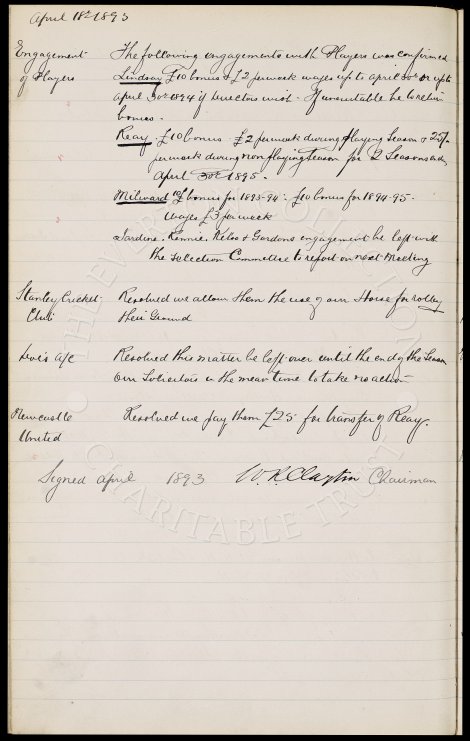 April 18th 1893
Engagement of Players
The following engagements with Players was confirmed
Lindsay £10 bonus & £2 per week wages up to april 30th or up to
april 30th 1894 if Directors wish - If unsuitable he to return
bonus -
Reay. £10 bonus - £2 per week during Playing Season & 25/-
per week during non playing season for 2 Seasons end
April 30th 1895 -
Milward 10£ bonus for 1893-94 - £10 bonus for 1894-95 -
Wages £3 per week
Jardine, Rennie, Kelso & Gordons engagement be left with
the Selection Committee to report on next Meeting
Stanley Cricket Club
Resolved we allow them the use of our Horse for rolling
their Ground
Lewis a/c
Resolved this matter be left over until the end of the Season
our Solicitors in the mean time to take no action
Newcastle United
Resolved we pay them £25 for transfer of Reay.
Signed April 1893 W. R. Clayton Chairman
THE EVERTON COLLECTION
CHARITABLE TRUST